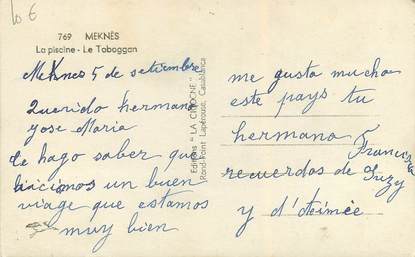 10 €
769 MEKNÈS
La piscine - Le Toboggan
Meknes 5 de setiembre
Querido hermano
Jose Maria
te hago saber que
hicimos un buen
viage que estamos
muy bien
Editions "LA CIGOGNE"
Rond-Point Lapérouse, Casablanca
me gusta mucho
este pays tu
hermano Francisco
recuerdos de Suzy
y d'Aimée